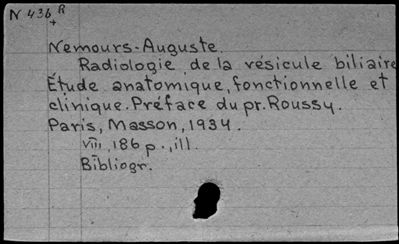 N 436 R
+
Nemours-Auguste.
Radiologie de la vésicule biliaire
Étude anatomique, fonctionnelle et
clinique. Préface du pr. Roussy.
Paris, Masson, 1934.
VIII, 186 p., ill.
Bibliogr.